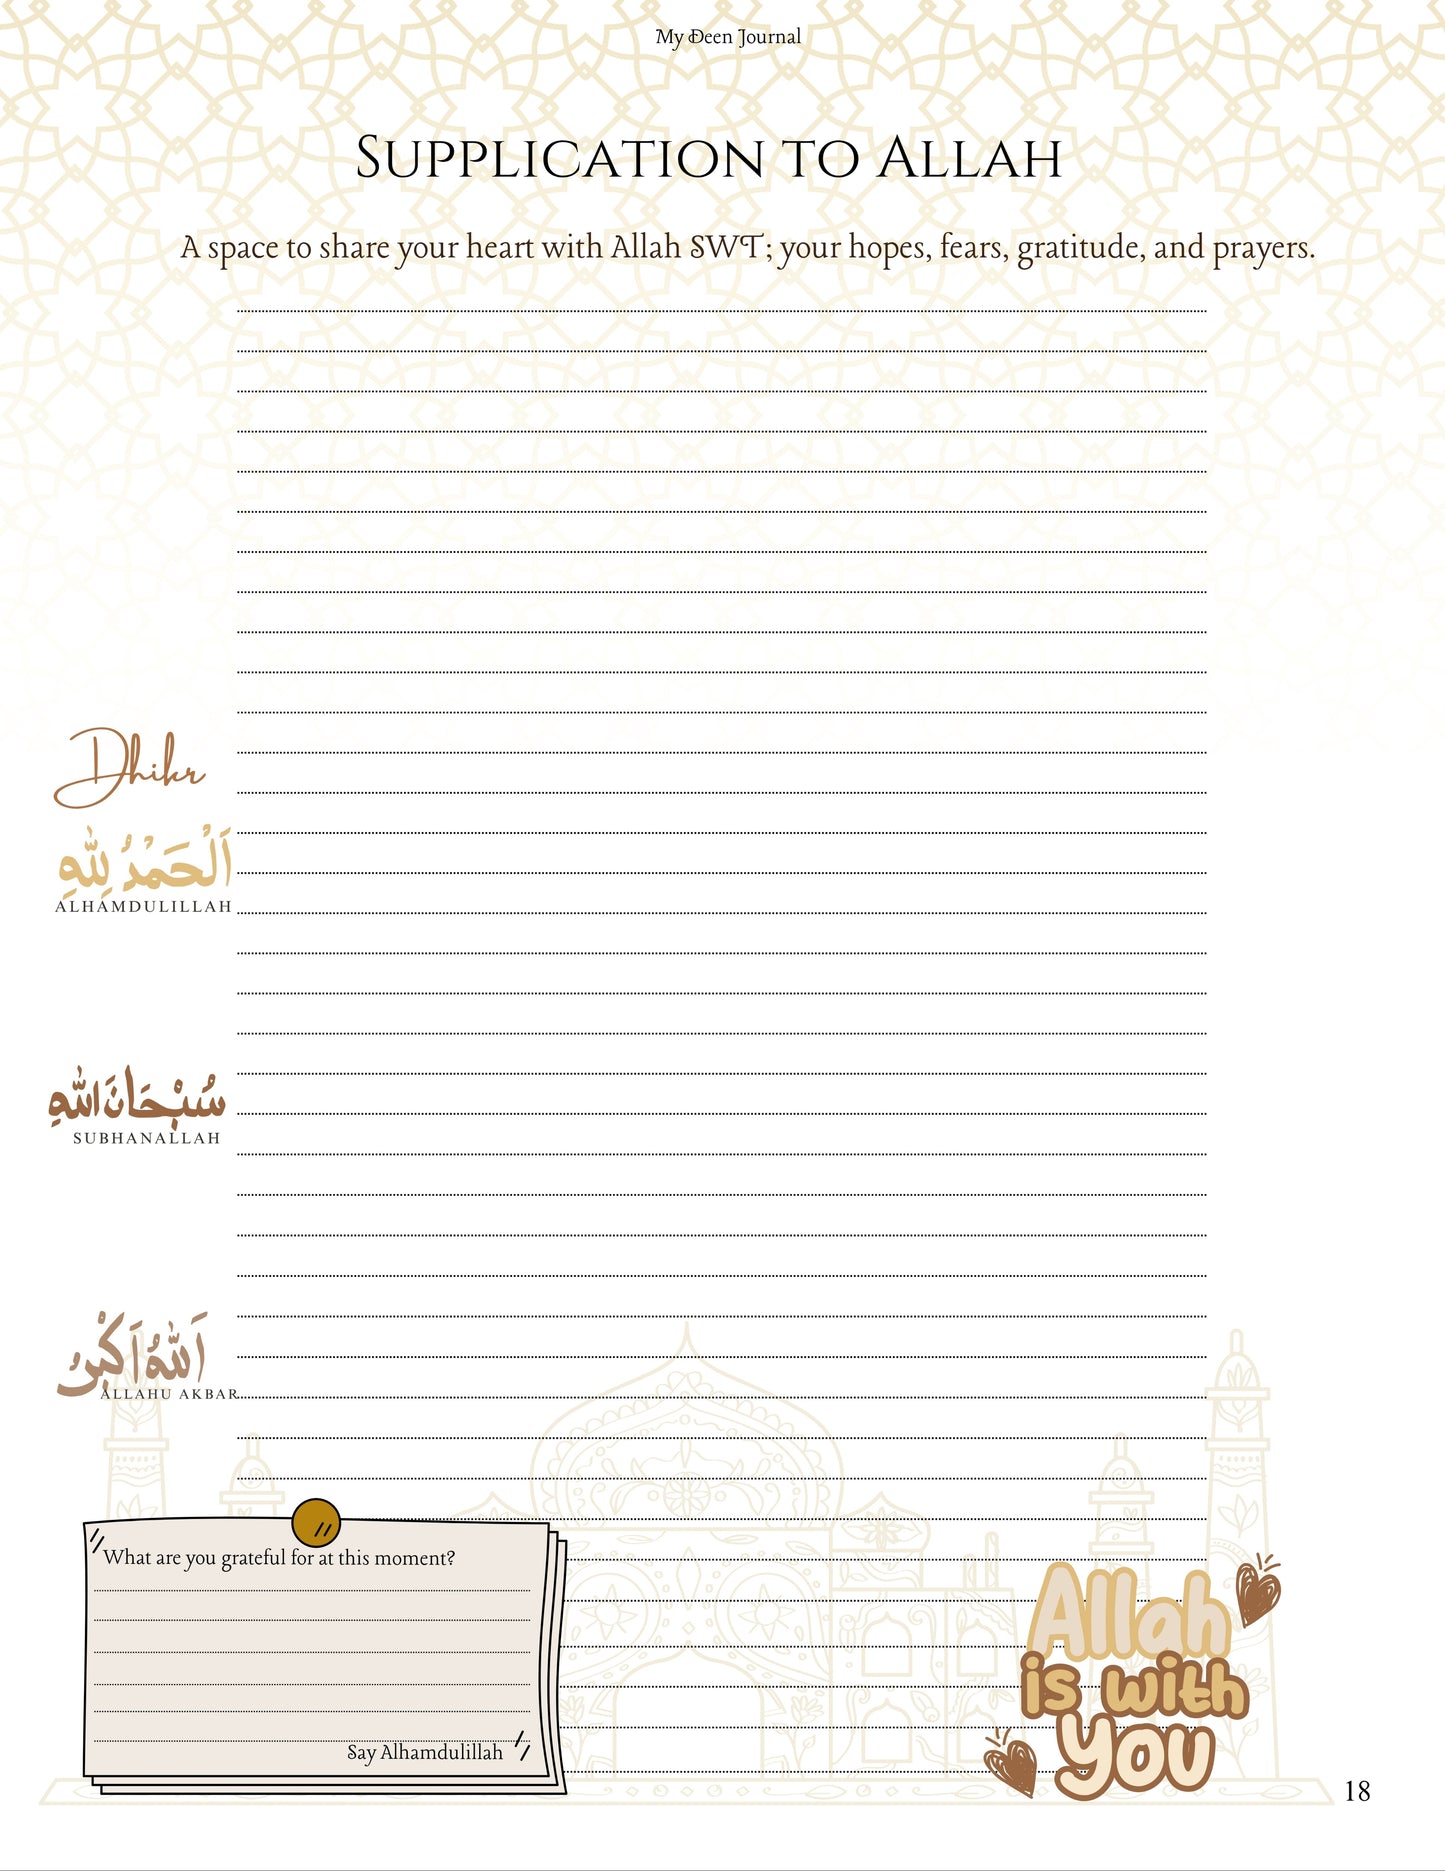 My Deen Journal
Supplication to Allah
A space to share your heart with Allah SWT; your hopes, fears, gratitude, and prayers.
Dhikr
اَلْحَمْدُ لِلّٰهِ
ALHAMDULILLAH
سُبْحَانَ اللّٰهِ
SUBHANALLAH
اَللّٰهُ اَكْبَرُ
ALLAHU AKBAR
What are you grateful for at this moment?
Say Alhamdulillah
Allah
is with
you
18